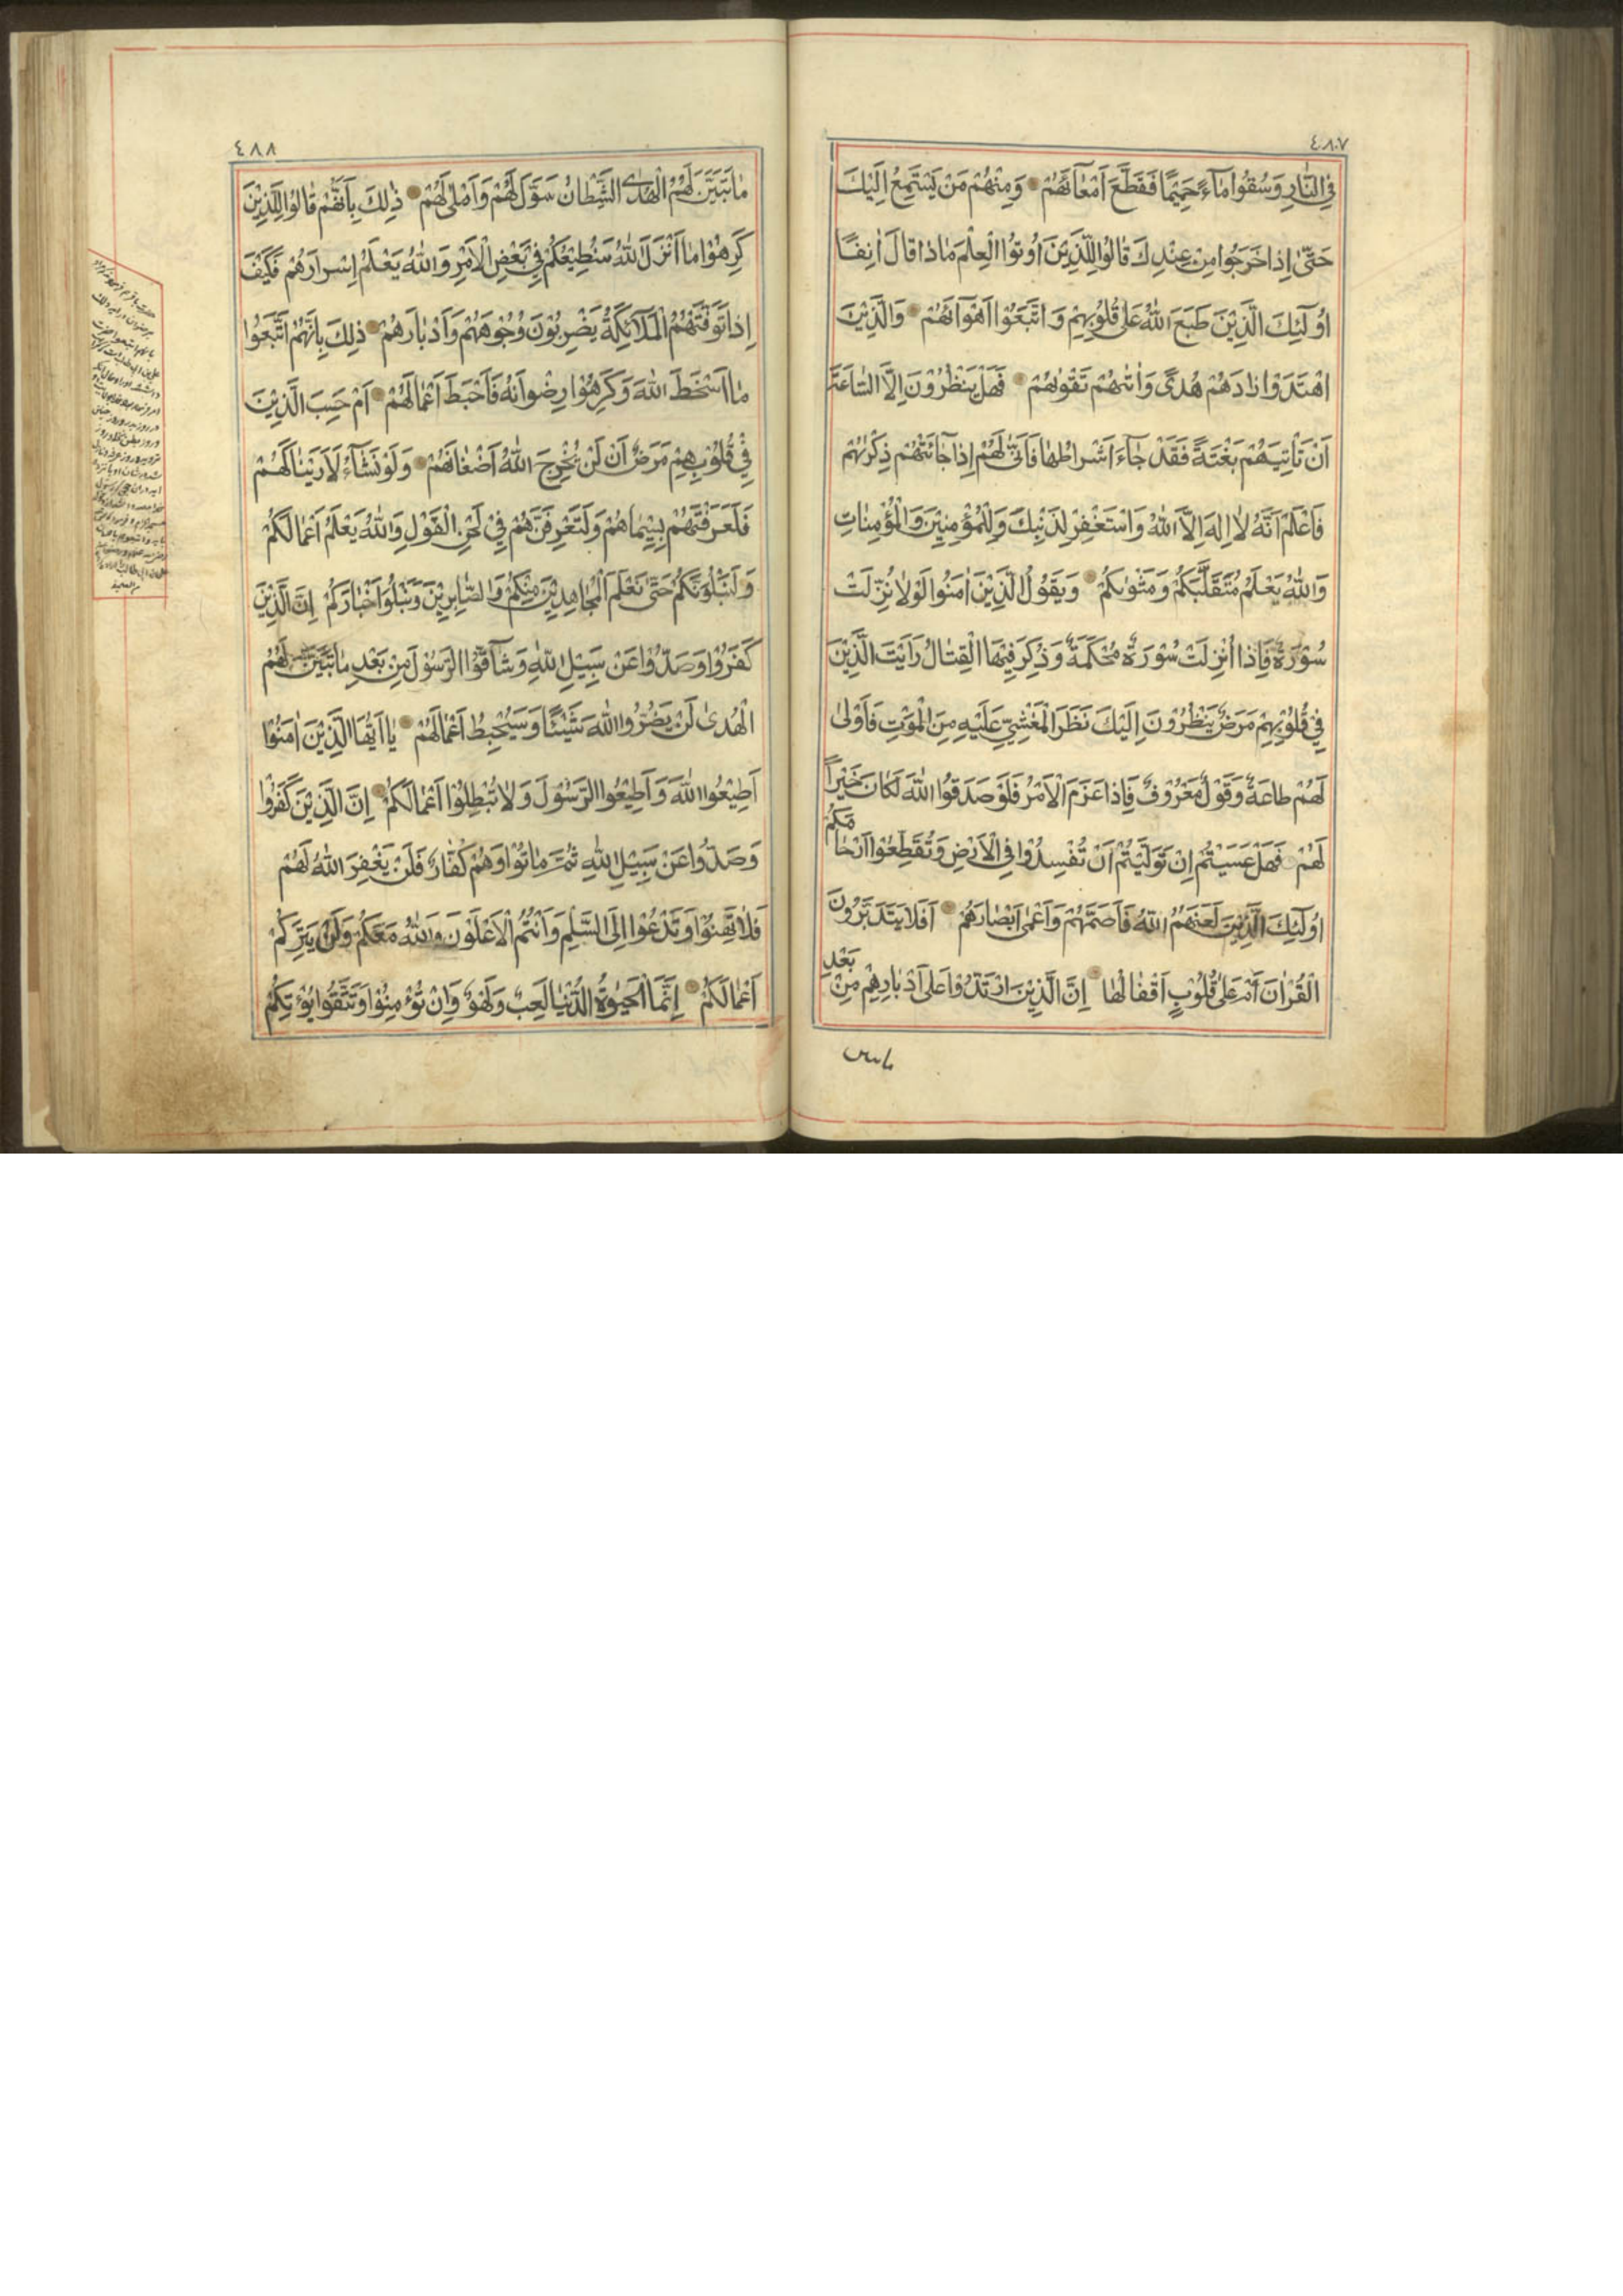 ٤٨٧
فِي النَّارِ وَسُقُوا مَاءً حَمِيمًا فَقَطَّعَ أَمْعَاءَهُمْ وَمِنْهُمْ مَنْ يَسْتَمِعُ إِلَيْكَ
حَتَّىٰ إِذَا خَرَجُوا مِنْ عِنْدِكَ قَالُوا لِلَّذِينَ أُوتُوا الْعِلْمَ مَاذَا قَالَ آنِفًا
أُولَٰئِكَ الَّذِينَ طَبَعَ اللَّهُ عَلَىٰ قُلُوبِهِمْ وَاتَّبَعُوا أَهْوَاءَهُمْ وَالَّذِينَ
اهْتَدَوْا زَادَهُمْ هُدًى وَآتَٰهُمْ تَقْوٰهُمْ فَهَلْ يَنْظُرُونَ إِلَّا السَّاعَةَ
أَنْ تَأْتِيَهُمْ بَغْتَةً فَقَدْ جَاءَ أَشْرَاطُهَا فَأَنَّىٰ لَهُمْ إِذَا جَائَتْهُمْ ذِكْرٰهُمْ
فَاعْلَمْ أَنَّهُ لَا إِلَٰهَ إِلَّا اللَّهُ وَاسْتَغْفِرْ لِذَنْبِكَ وَلِلْمُؤْمِنِينَ وَالْمُؤْمِنَاتِ
وَاللَّهُ يَعْلَمُ مُتَقَلَّبَكُمْ وَمَثْوٰىكُمْ وَيَقُولُ الَّذِينَ آمَنُوا لَوْلَا نُزِّلَتْ
سُورَةٌ فَإِذَا أُنْزِلَتْ سُورَةٌ مُحْكَمَةٌ وَذُكِرَ فِيهَا الْقِتَالُ رَأَيْتَ الَّذِينَ
فِي قُلُوبِهِمْ مَرَضٌ يَنْظُرُونَ إِلَيْكَ نَظَرَ الْمَغْشِيِّ عَلَيْهِ مِنَ الْمَوْتِ فَأَوْلَىٰ
لَهُمْ طَاعَةٌ وَقَوْلٌ مَعْرُوفٌ فَإِذَا عَزَمَ الْأَمْرُ فَلَوْ صَدَقُوا اللَّهَ لَكَانَ خَيْرًا
لَهُمْ فَهَلْ عَسَيْتُمْ إِنْ تَوَلَّيْتُمْ أَنْ تُفْسِدُوا فِي الْأَرْضِ وَتُقَطِّعُوا أَرْحَامَكُمْ
أُولَٰئِكَ الَّذِينَ لَعَنَهُمُ اللَّهُ فَأَصَمَّهُمْ وَأَعْمَىٰ أَبْصَارَهُمْ أَفَلَا يَتَدَبَّرُونَ
الْقُرْآنَ أَمْ عَلَىٰ قُلُوبٍ أَقْفَالُهَا إِنَّ الَّذِينَ ارْتَدُّوا عَلَىٰ أَدْبَارِهِمْ مِنْ بَعْدِ
٤٨٨
مَا تَبَيَّنَ لَهُمُ الْهُدَى الشَّيْطَانُ سَوَّلَ لَهُمْ وَأَمْلَىٰ لَهُمْ ذَٰلِكَ بِأَنَّهُمْ قَالُوا لِلَّذِينَ
كَرِهُوا مَا أَنْزَلَ اللَّهُ سَنُطِيعُكُمْ فِي بَعْضِ الْأَمْرِ وَاللَّهُ يَعْلَمُ إِسْرَارَهُمْ فَكَيْفَ
إِذَا تَوَفَّتْهُمُ الْمَلَائِكَةُ يَضْرِبُونَ وُجُوهَهُمْ وَأَدْبَارَهُمْ ذَٰلِكَ بِأَنَّهُمُ اتَّبَعُوا
مَا أَسْخَطَ اللَّهَ وَكَرِهُوا رِضْوَانَهُ فَأَحْبَطَ أَعْمَالَهُمْ أَمْ حَسِبَ الَّذِينَ
فِي قُلُوبِهِمْ مَرَضٌ أَنْ لَنْ يُخْرِجَ اللَّهُ أَضْغَانَهُمْ وَلَوْ نَشَاءُ لَأَرَيْنَاكَهُمْ
فَلَعَرَفْتَهُمْ بِسِيمَاهُمْ وَلَتَعْرِفَنَّهُمْ فِي لَحْنِ الْقَوْلِ وَاللَّهُ يَعْلَمُ أَعْمَالَكُمْ
وَلَنَبْلُوَنَّكُمْ حَتَّىٰ نَعْلَمَ الْمُجَاهِدِينَ مِنْكُمْ وَالصَّابِرِينَ وَنَبْلُوَ أَخْبَارَكُمْ إِنَّ الَّذِينَ
كَفَرُوا وَصَدُّوا عَنْ سَبِيلِ اللَّهِ وَشَاقُّوا الرَّسُولَ مِنْ بَعْدِ مَا تَبَيَّنَ لَهُمُ
الْهُدَىٰ لَنْ يَضُرُّوا اللَّهَ شَيْئًا وَسَيُحْبِطُ أَعْمَالَهُمْ يَا أَيُّهَا الَّذِينَ آمَنُوا
أَطِيعُوا اللَّهَ وَأَطِيعُوا الرَّسُولَ وَلَا تُبْطِلُوا أَعْمَالَكُمْ إِنَّ الَّذِينَ كَفَرُوا
وَصَدُّوا عَنْ سَبِيلِ اللَّهِ ثُمَّ مَاتُوا وَهُمْ كُفَّارٌ فَلَنْ يَغْفِرَ اللَّهُ لَهُمْ
فَلَا تَهِنُوا وَتَدْعُوا إِلَى السَّلْمِ وَأَنْتُمُ الْأَعْلَوْنَ وَاللَّهُ مَعَكُمْ وَلَنْ يَتِرَكُمْ
أَعْمَالَكُمْ إِنَّمَا الْحَيٰوةُ الدُّنْيَا لَعِبٌ وَلَهْوٌ وَإِنْ تُؤْمِنُوا وَتَتَّقُوا يُؤْتِكُمْ